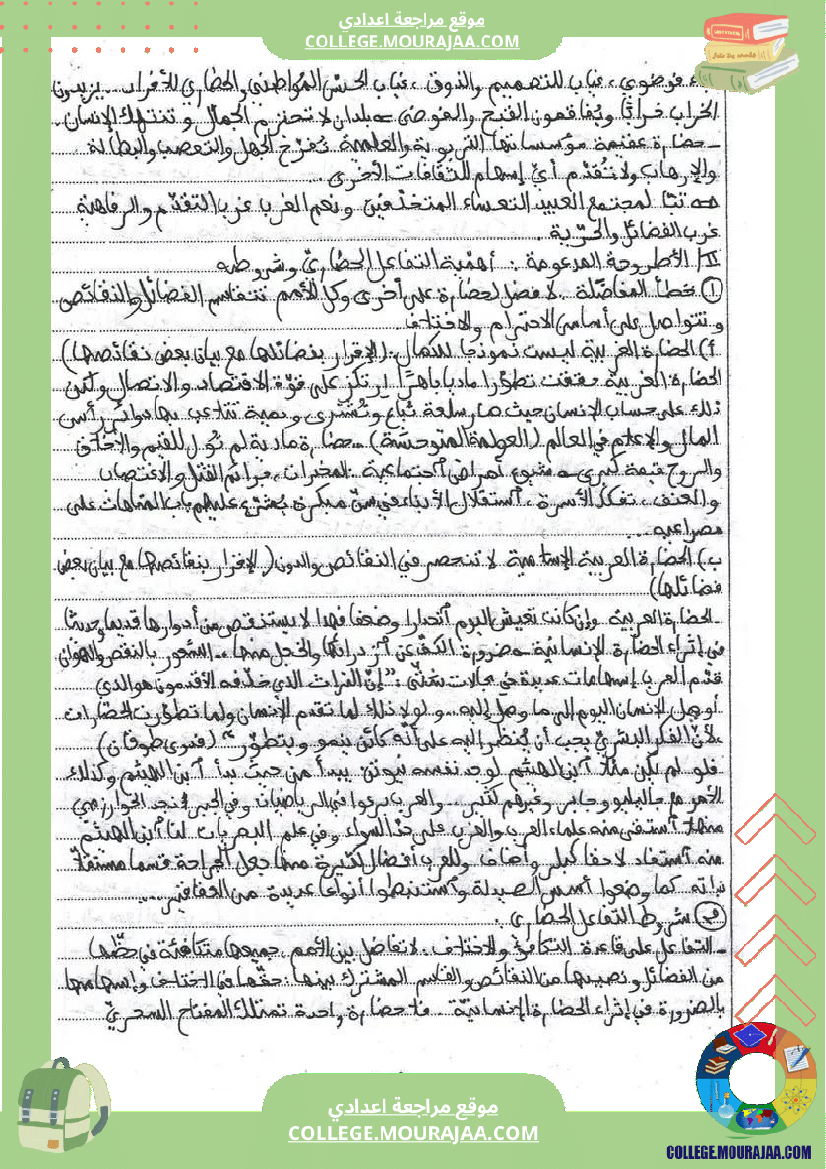 موقع مراجعة اعدادي
COLLEGE.MOURAJAA.COM
بناء فوضوي، غياب للتصميم والذوق، غياب الحسّ المُواطني والحضاري للأفراد... يزيدون
الخراب خرابًا ويُفاقمون القبح والفوضى ← بلدان لا تحترم الجمال و تنتهك الإنسان.
- حضارة عقيمة مؤسساتها التربوية والعلمية تُفرّخ الجهل والتعصب والبطالة
والإرهاب ولا تُقدّم أيّ إسهام للثقافات الأخرى..
⇐ تبّا لمجتمع العبيد التعساء المتخلّفين و نعم الغرب غرب التقدّم والرفاهية
غرب الفضائل والحرّية.
II/ الأطروحة المدعومة: أهمّية التفاعل الحضاريّ وشروطه
① خطأ المفاضلة. لا فضل لحضارة على أخرى وكل الأمم تتقاسم الفضائل والنقائص
و تتواصل على أساس الاحترام والاختلاف
أ) الحضارة الغربيّة ليست نموذجا للكمال: (الإقرار بفضائلها مع بيان بعض نقائصها)
الحضارة الغربيّة حققت تطوّرا ماديا باهرًا يرتكز على قوّة الاقتصاد والاتصال ولكن
ذلك على حساب الإنسان حيث صار سلعة تُباع وتُشترى ودمية تتلاعب بها دوائر رأس
المال والإعلام في العالم (العولمة المتوحشة) - حضارة مادية لم تُولِ للقيم والأخلاق
والروح قيمة كبرى ← شيوع أمراض اجتماعية: المخدرات، جرائم القتل والاغتصاب
والعنف، تفكك الأسرة، استقلال الأبناء في سنّ مبكرة يُشرّع عليهم باب المتاهات على
مصراعيه...
ب) الحضارة العربية الإسلامية لا تنحصر في النقائص والدون (الإقرار بنقائصها مع بيان بعض
فضائلها)
-الحضارة العربية وإن كانت تعيش اليوم انحدارا وضعفا فهذا لا يستنقص من أدوارها قديما وحديثا
في إثراء الحضارة الإنسانيّة ← ضرورة الكفّ عن ازدرائها والخجل منها.. الشعور بالنقص والهوان
قدّم العرب إسهامات عديدة في مجالات شتّى: "إنّ التراث الذي خلّفه الأقدمون هو الذي
أوصل الإنسان اليوم إلى ما وصل إليه... و لولا ذلك لما تقدم الإنسان ولما تطوّرت الحضارات
لأنّ الفكر البشريّ يجب أن يُنظر إليه على أنّه كائن ينمو و يتطوّر" (قدري طوقان)
فلو لم يكن مثلا ابن الهيثم لوجد نفسه نيوتن يبدأ من حيث بدأ ابن الهيثم وكذلك
الأمر مع جاليليو وجابر وغيرهم كثير... والعرب برعوا في الرياضيات وفي الجبر فنجد الخوارزمي
منهلا استقى منه علماء العرب والغرب على حدّ السواء وفي علم البصريات لنا ابن الهيثم
منه استفاد لاحقا كبلر وأضاف وللعرب أفضال كثيرة ممّا جعل الجراحة قسما مستقلّا
بذاته كما وضعوا أسس الصيدلة واستنبطوا أنواعا عديدة من العقاقير...
② شروط التفاعل الحضاري.
- التفاعل على قاعدة التكافؤ والاختلاف: لا تفاضل بين الأمم، جميعها متكافئة في حظّها
من الفضائل ونصيبها من النقائص والقاسم المشترك بينها: حقّها في الاختلاف وإسهامها
بالضرورة في إثراء الحضارة الإنسانيّة. فلا حضارة واحدة تمتلك المفتاح السحريّ
موقع مراجعة اعدادي
COLLEGE.MOURAJAA.COM
COLLEGE.MOURAJAA.COM